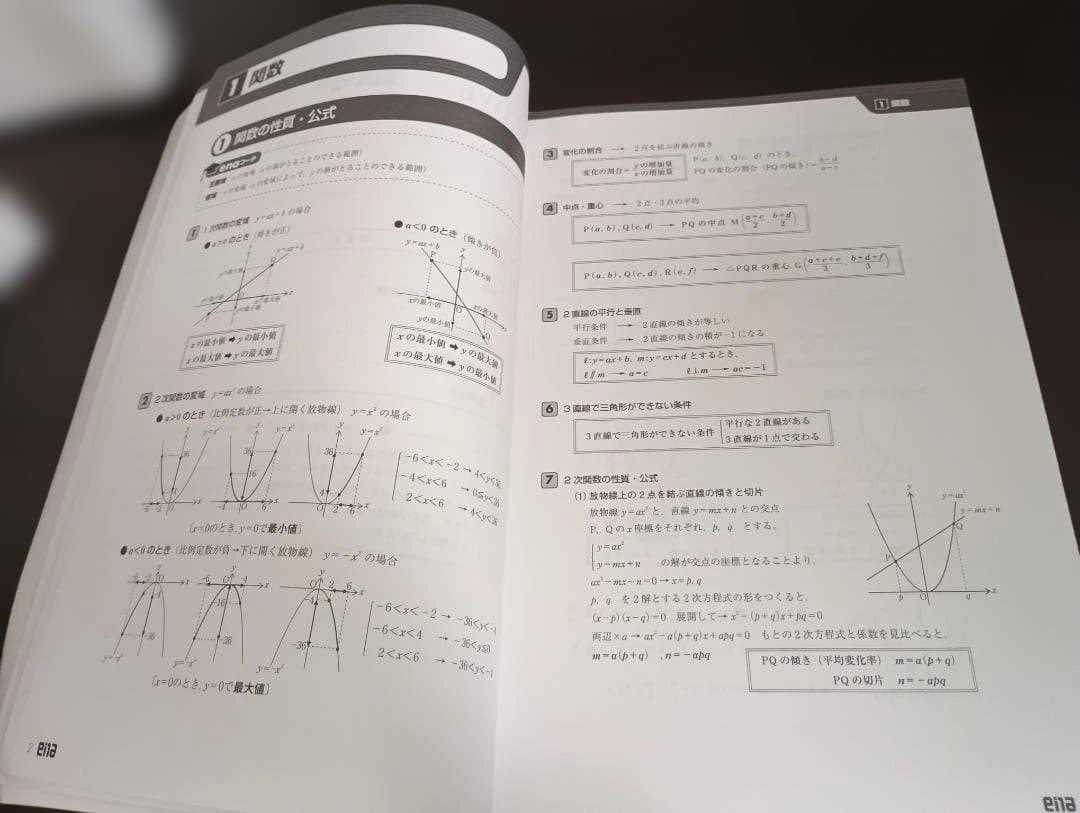 1 関数
① 関数の性質・公式
enaコーチ
定義域 xの変域(xの値がとることのできる範囲)
値域 yの変域(xの変域によって,yの値がとることのできる範囲)
1 1次関数の変域 y=ax+bの場合
●a>0のとき(傾きが正)
y=ax+b
Q
yの最大値
xの最小値
O
xの最大値
x
yの最小値
P
xの最小値➡yの最小値
xの最大値➡yの最大値
●a<0のとき(傾きが負)
y=ax+b
y
P
yの最大値
xの最小値
O
xの最大値
x
yの最小値
Q
xの最小値➡yの最大値
xの最大値➡yの最小値
2 2次関数の変域 y=ax²の場合
●a>0のとき(比例定数が正→上に開く放物線) y=x²の場合
y y=x²
36
4
-6 -2 O x
y y=x²
36
16
-4 O 6 x
y y=x²
36
4
O 2 6 x
-6<x<-2→4<y<36
-4<x<6→0≦y<36
2<x<6→4<y<36
〔x=0のとき,y=0で最小値〕
●a<0のとき(比例定数が負→下に開く放物線) y=-x²の場合
-6 -2 y O x
-4
-36
y=-x²
-6 O y 4 x
-16
-36
y=-x²
O y 2 6 x
-4
-36
y=-x²
-6<x<-2→-36<y<-4
-6<x<4→-36<y≦0
2<x<6→-36<y<-4
〔x=0のとき,y=0で最大値〕
2 ena
1 関数
3 変化の割合 → 2点を結ぶ直線の傾き
変化の割合=yの増加量/xの増加量
P(a, b), Q(c, d)のとき,
PQの変化の割合(PQの傾き)=b-d/a-c
4 中点・重心 → 2点・3点の平均
P(a, b), Q(c, d) → PQの中点 M(a+c/2, b+d/2)
P(a, b), Q(c, d), R(e, f) → △PQRの重心 G(a+c+e/3, b+d+f/3)
5 2直線の平行と垂直
平行条件 → 2直線の傾きが等しい
垂直条件 → 2直線の傾きの積が-1になる
ℓ:y=ax+b, m:y=cx+dとするとき,
ℓ∥m → a=c ℓ⊥m → ac=-1
6 3直線で三角形ができない条件
3直線で三角形ができない条件
平行な2直線がある
3直線が1点で交わる
7 2次関数の性質・公式
(1) 放物線上の2点を結ぶ直線の傾きと切片
放物線y=ax²と,直線y=mx+nとの交点
P, Qのx座標をそれぞれ, p, qとする。
y=ax²
y=mx+n の解が交点の座標となることより,
ax²-mx-n=0→x=p, q
p, qを2解とする2次方程式の形をつくると,
(x-p)(x-q)=0 展開して→x²-(p+q)x+pq=0
両辺×a→ax²-a(p+q)x+apq=0 もとの2次方程式と係数を見比べると,
m=a(p+q) ,n=-apq
PQの傾き(平均変化率) m=a(p+q)
PQの切片 n=-apq
y y=ax²
y=mx+n
Q
P
p O q x
ena